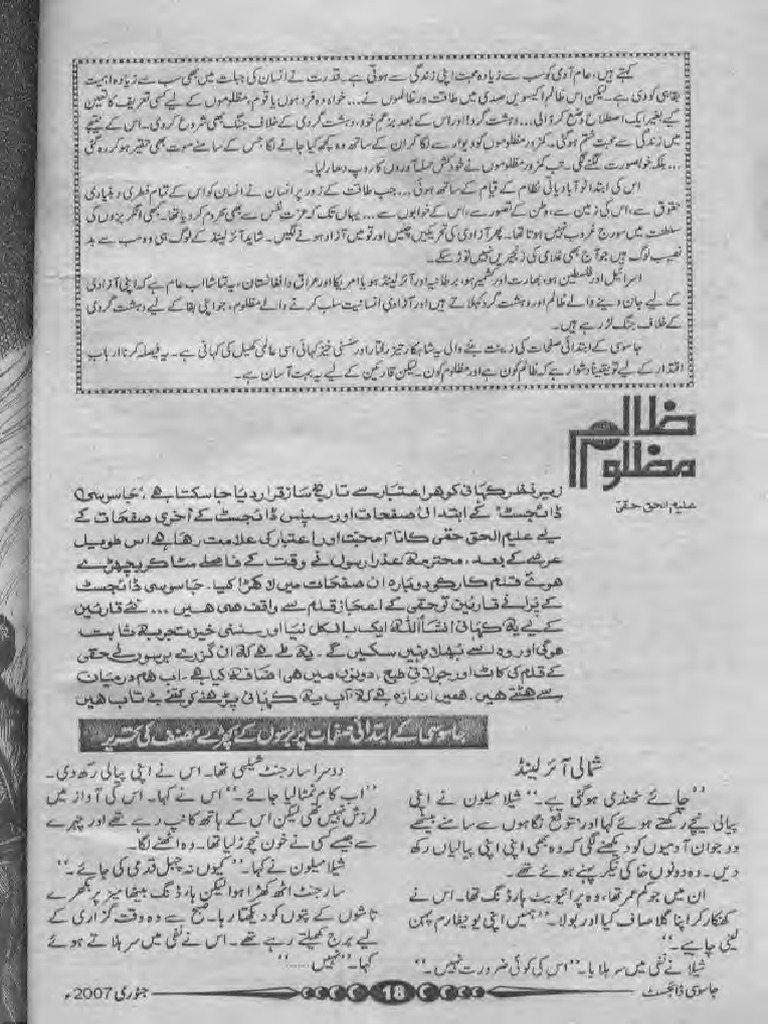 کہتے ہیں، عام آدمی کو سب سے زیادہ محبت اپنی زندگی سے ہوتی ہے۔ قدرت نے انسان کی جبلت میں بھی سب سے زیادہ اہمیت
بقا ہی کو دی ہے۔ لیکن اس ظالم اکیسویں صدی میں طاقت ور ظالموں نے... خواہ وہ فرد ہوں یا قوم، مظلوموں کے لیے کسی تعریف کا تعین
کیے بغیر ایک اصطلاح وضع کر ڈالی... دہشت گرد! اور اس کے بعد بزعم خود، دہشت گردی کے خلاف جنگ بھی شروع کر دی۔ اس کے نتیجے
میں زندگی سے محبت ختم ہو گئی۔ کمزور مظلوموں کو دیوار سے لگا کر ان کے ساتھ وہ کچھ کیا جانے لگا جس کے سامنے موت بھی حقیر ہو کر رہ گئی
... بلکہ خوبصورت لگنے لگی۔ تب کمزور مظلوموں نے خودکش حملہ آوروں کا روپ دھار لیا۔
اس کی ابتدا نوآبادیاتی نظام کے قیام کے ساتھ ہوئی... جب طاقت کے زور پر انسان نے انسان کو اس کے تمام فطری و بنیادی
حقوق سے، اس کی زمین سے، وطن کے تصور سے، اس کے خوابوں سے... یہاں تک کہ عزت نفس سے بھی محروم کر دیا تھا۔ کبھی انگریزوں کی
سلطنت میں سورج غروب نہیں ہوتا تھا۔ پھر آزادی کی تحریکیں چلیں اور قومیں آزاد ہونے لگیں۔ شاید آئرلینڈ کے لوگ ہی وہ سب سے بد
نصیب لوگ ہیں جو آج بھی غلامی کی زنجیریں نہیں توڑ سکے۔
اسرائیل اور فلسطین ہو، بھارت اور کشمیر ہو، برطانیہ اور آئرلینڈ ہو یا امریکا اور عراق و افغانستان، یہ تماشا اب عام ہے کہ اپنی آزادی
کے لیے جان دینے والے ظالم اور دہشت گرد کہلاتے ہیں اور آزادی انسانیت سلب کرنے والے مظلوم، جو اپنی بقا کے لیے دہشت گردی
کے خلاف جنگ لڑ رہے ہیں۔
جاسوسی کے ابتدائی صفحات کی زینت بننے والی یہ شاہکار تیز رفتار اور سنسنی خیز کہانی اسی عالمی کھیل کی کہانی ہے۔ یہ فیصلہ کرنا ارباب
اقتدار کے لیے تو یقیناً دشوار ہے کہ ظالم کون ہے اور مظلوم کون۔ لیکن قارئین کے لیے یہ بہت آسان ہے۔
ظالم
مظلوم
علیم الحق حقی
زیر نظر کہانی کو ہر اعتبار سے تاریخ ساز قرار دیا جا سکتا ہے، "جاسوسی
ڈائجسٹ" کے ابتدائی صفحات اور سسپنس ڈائجسٹ کے آخری صفحات کے
لیے علیم الحق حقی کا نام محبت اور اعتبار کی علامت رہا ہے اس طویل
عرصے کے بعد، محترمہ عذرا رسول نے وقت کے فاصلے مٹا کر بچھڑے
ہوئے قلم کار کو دوبارہ ان صفحات میں لا کھڑا کیا۔ جاسوسی ڈائجسٹ
کے پرانے قارئین تو حقی کے اعجاز قلم سے واقف ہی ہیں... نئے قارئین
کے لیے یہ کہانی انشاءاللہ ایک بالکل نیا اور سنسنی خیز تجربہ ثابت
ہوگی اور وہ اسے بھلا نہیں سکیں گے۔ یہ طے ہے کہ ان گزرے برسوں نے حقی
کے قلم کی کاٹ اور جولانی طبع، دونوں میں ہی اضافہ کیا ہے۔ اب ہم درمیان
سے ہٹتے ہیں۔ ہمیں اندازہ ہے کہ آپ یہ کہانی پڑھنے کو کتنے بے تاب ہیں
جاسوسی کے ابتدائی صفحات پر برسوں کے بچھڑے مصنف کی تحریر
شمالی آئرلینڈ
"چائے ٹھنڈی ہو گئی ہے۔" شیلا میلون نے اپنی
پیالی نیچے رکھتے ہوئے کہا اور متوقع نگاہوں سے سامنے بیٹھے
دو جوان آدمیوں کو دیکھنے لگی کہ وہ بھی اپنی اپنی پیالیاں رکھ
دیں۔ وہ دونوں خاکی نیکر پہنے ہوئے تھے۔
ان میں جو کم عمر تھا، وہ پرائیویٹ ہارڈنگ تھا۔ اس نے
کھنکار کر اپنا گلا صاف کیا اور بولا۔ "ہمیں اپنی یونیفارم پہن
لینی چاہیے۔"
شیلا نے نفی میں سر ہلایا۔ "اس کی کوئی ضرورت نہیں۔"
دوسرا سارجنٹ شیلسی تھا۔ اس نے اپنی پیالی رکھ دی۔
"اب کام نمٹا لیا جائے۔" اس نے کہا۔ اس کی آواز میں
لرزش نہیں تھی لیکن اس کے ہاتھ کانپ رہے تھے اور چہرے
سے جیسے کسی نے خون نچوڑ لیا تھا۔ وہ اٹھنے لگا۔
شیلا میلون نے کہا۔ "کیوں نہ چہل قدمی کی جائے۔"
سارجنٹ اٹھ کھڑا ہوا لیکن ہارڈنگ بیٹھا میز پر بکھرے
تاشوں کے پتوں کو دیکھتا رہا۔ صبح سے وہ وقت گزاری کے
لیے برج کھیلتے رہے تھے۔ اس نے نفی میں سر ہلاتے ہوئے
کہا۔ "نہیں......"
جاسوسی ڈائجسٹ
18
جنوری 2007ء